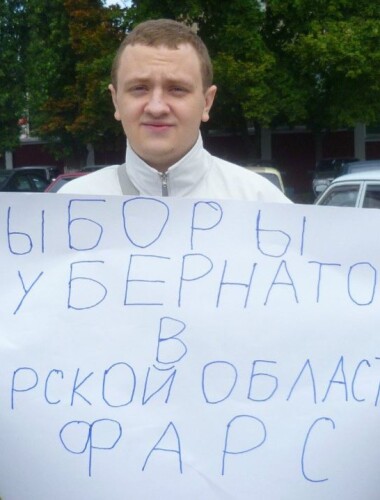 ЫБОРЫ
УБЕРНАТО
В
РСКОЙ ОБЛАСТ
ФАРС